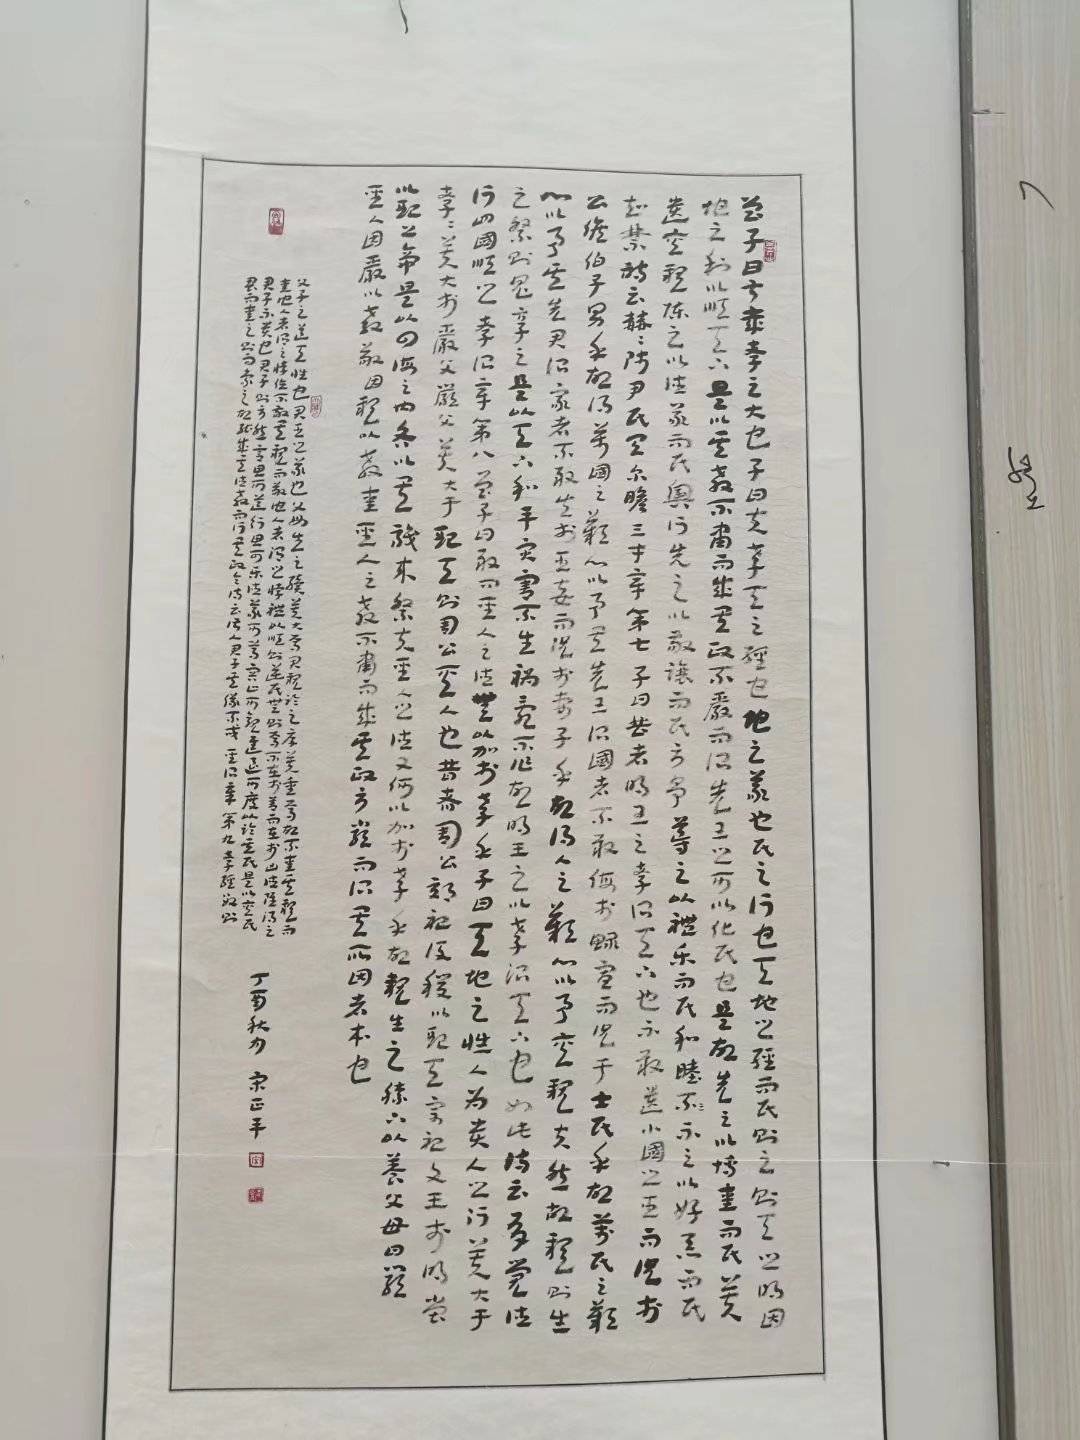 曾子曰甚哉孝之大也子曰夫孝天之經也地之義也民之行也天地之經而民則之則天之明因
地之利以順天下是以其教不肅而成其政不嚴而治先王之可以化民也是故先之以博愛而民莫
遺其親陳之以德義而民興行先之以敬讓而民不爭導之以禮樂而民和睦示之以好惡而民
知禁詩云赫〻師尹民具爾瞻三才章第七子曰昔者明王之孝治天下也不敢遺小國之臣而況於
公侯伯子男乎故得萬國之歡心以事其先王治國者不敢侮於鰥寡而況于士民乎故萬民之歡
心以事其先君治家者不敢失於臣妾而況於妻子乎故得人之歡心以事其親夫然故親則生
之祭則鬼享之是以天下和平灾害不生禍亂不作故明王之以孝治天下也如此詩云有覺德
行四國順之孝治章第八曾子曰敢問聖人之德無以加於孝乎子曰天地之性人為貴人之行莫大于
孝〻莫大於嚴父嚴父莫大于配天則周公其人也昔者周公郊祀后稷以配天宗祀文王於明堂
以配上帝是以四海之內各以其職來祭夫聖人之德又何以加於孝乎故親生之膝下以養父母日嚴
聖人因嚴以教敬因親以教愛聖人之教不肅而成其政不嚴而治其所因者本也
父子之道天性也君臣之義也父母生之續莫大焉君親臨之厚莫重焉故不愛其親而
愛他人者謂之悖德不敬其親而敬他人者謂之悖禮以順則逆民無則焉不在於善而在於凶德雖得之
君子不貴也君子則不然言思可道行思可樂德義可尊容止可觀進退可度以臨其民是以其民
畏而愛之則而象之故能成其德教而行其政令詩云淑人君子其儀不忒聖治章第九孝經數則
丁酉秋月 宋正平